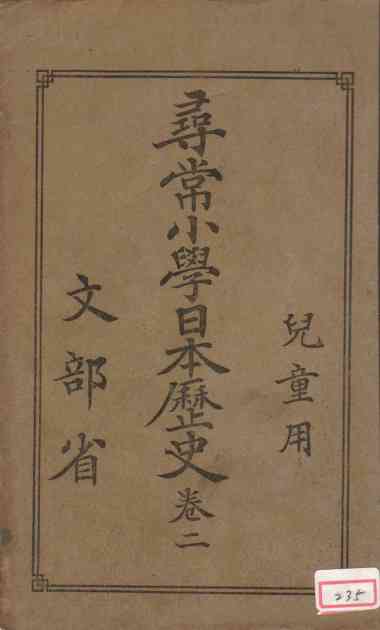 兒童用
尋常小學日本歷史卷二
文部省
235